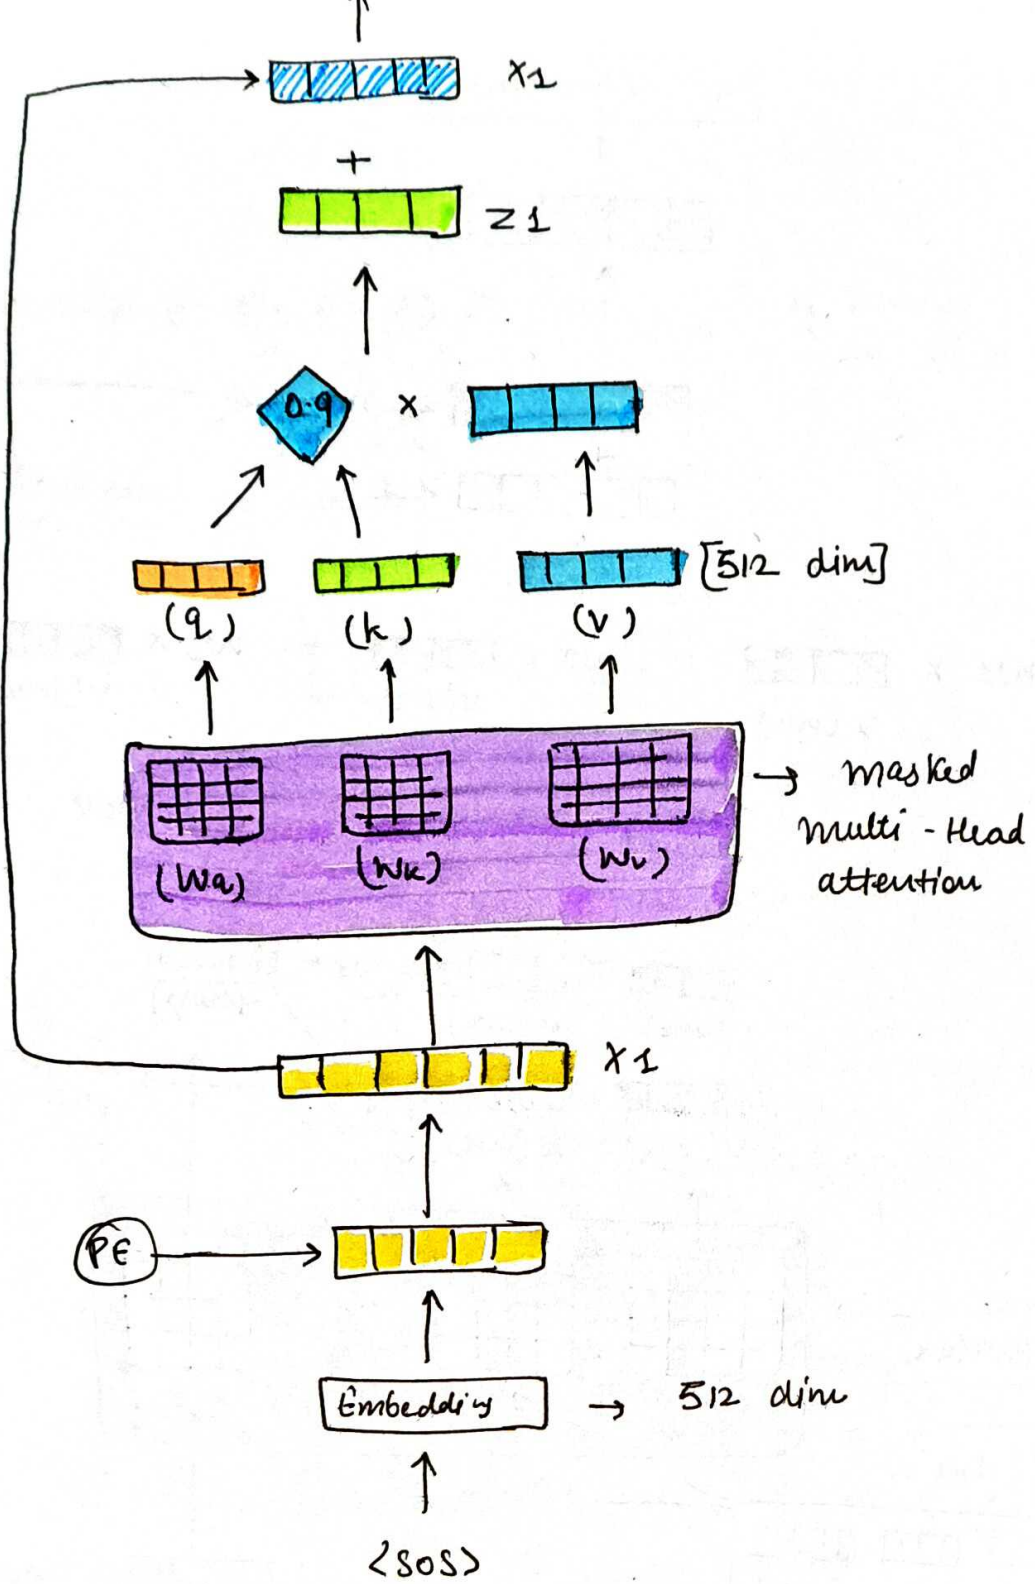 x1
+
z1
0.9 x
[512 dim]
(q) (k) (v)
masked
multi-Head
attention
(Wq) (Wk) (Wv)
x1
PE
Embedding → 512 dim
<SOS>